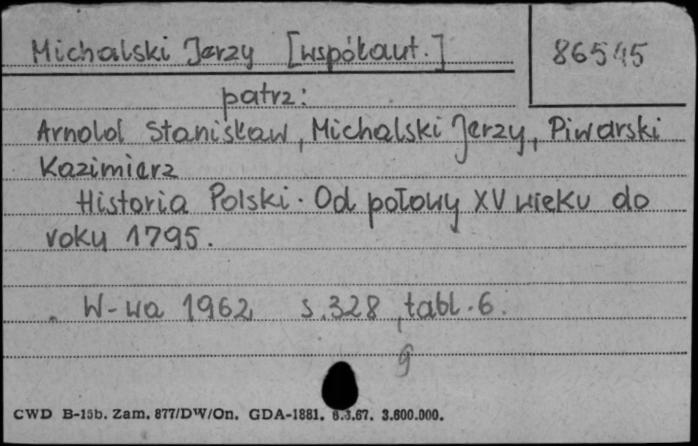 Michalski Jerzy [współaut.] 86545
patrz:
Arnold Stanisław, Michalski Jerzy, Piwarski
Kazimierz
Historia Polski. Od połowy XV wieku do
roku 1795.
W-wa 1962, s. 328, tabl. 6.
9
CWD B-15b. Zam. 877/DW/On. GDA-1881. 6.3.67. 3.600.000.